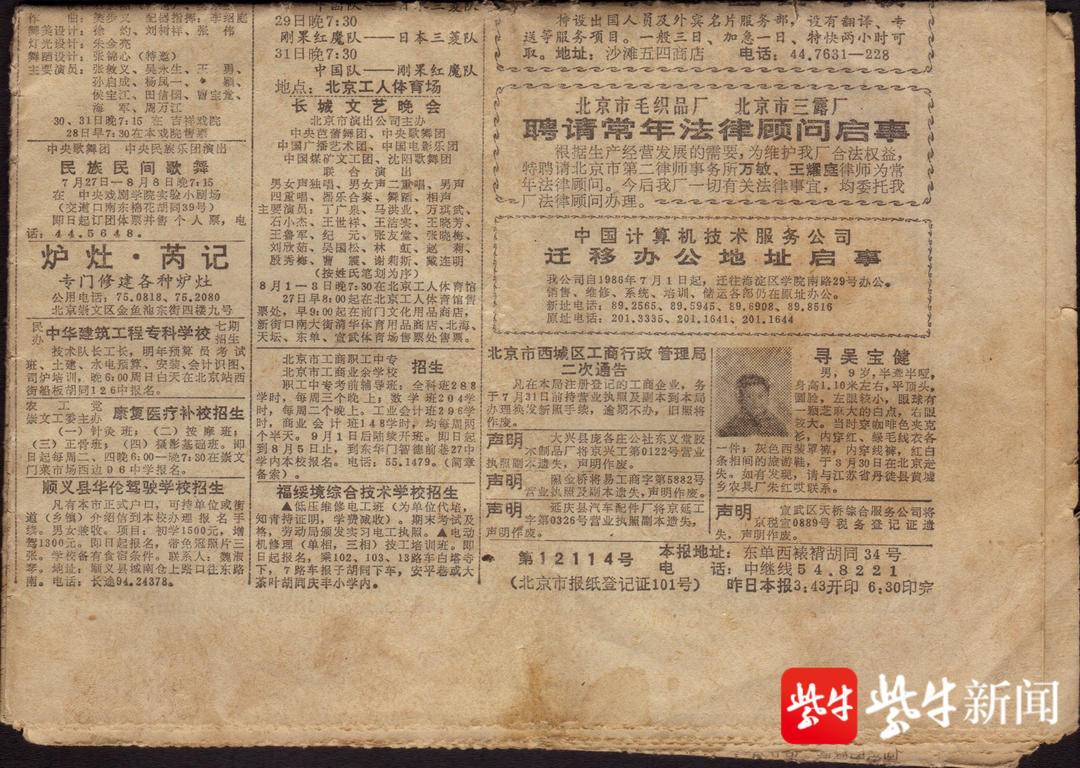 舞美设计：徐 约、刘树祥、张 伟
灯光设计：朱金亮
舞蹈设计：张锦心（特邀）
主要演员：张敏义、吴永生、王 勇、
侯宝江、田信国、曹宝堂、
海 军、周万江
30、31日晚7:15 在 吉祥戏院
28日早7:30在本戏院售票
中央歌舞团 中央民族乐团演出
民族民间歌舞
7月27日—8月8日晚7:15
在 中央戏剧学院实验小剧场
（交道口南东棉花胡同39号）
即日起订团体票并售个人票，电
话：44.5648.
炉灶·芮记
专门修建各种炉灶
公用电话：75.0818、75.2080
北京崇文区金鱼池东街四楼九号
民办中华建筑工程专科学校七期招生
技术队长工长，明年预算员考试
班、土建、水电预算、安装、会计识图、
司炉培训，晚6:00周日白天在北京站西
街船板胡同126中报名。
农工党
崇文工委主办 康复医疗补校招生
（一）针灸班；（二）按摩班；
（三）正骨班；（四）摄影基础班。即
日起每周二、四晚6:00—晚7:30在崇文
门菜市场西边96中学报名。
顺义县华伦驾驶学校招生
凡有本市正式户口，可持单位或街
道（乡镇）介绍信到本校办理报名手
续。男女兼收。项目：初学1500元，增
驾1300元。即日起报名，带免冠照片三
张。学校备有食宿条件。联系人：魏淑
琴。地址：顺义县城南仓上路口往东路
南。电话：长途94.24378.
29日晚7:30
刚果红魔队——日本三菱队
31日晚7:30
中国队——刚果红魔队
地点：北京工人体育场
长城文艺晚会
北京市演出公司主办
中央芭蕾舞团、中央歌舞团
中国广播艺术团、中国电影乐团
中国煤矿文工团、沈阳歌舞团
联合演出
男女声独唱、男女声二重唱、男声
四重唱、器乐合奏、舞蹈、相声
主要演员：丁广泉、马洪业、万琪武、
石小杰、王世祥、王洁实、王晓芳、
王鲁军、纪 元、张友堂、张晓梅、
刘欣茹、吴国松、林 虹、赵 莉、
殷秀梅、曹 震、谢莉斯、戴连明
（按姓氏笔划为序）
8月1—3日晚7:30在北京工人体育馆
27日早8:00起在北京工人体育馆售
票处，早9:00起在前门文化用品商店，
新街口南大街清华体育用品商店、北海、
天坛、东单、宣武体育场售票处售票。
北京市工商职工中专
北京市工商业余学校 招生
职工中专考前辅导班：全科班288
学时，每周三个晚上；数学班204学
时，每周二个晚上，工业会计班296学
时，商业会计班148学时，均每周两
个半天。9月1日后陆续开班。即日起
到8月5日止，到东华门智德前巷27中
学内本校报名。电话：55.1479.（简章
备索）。
福绥境综合技术学校招生
▲低压维修电工班（为单位代培，
知青持证明，学费减收）。期末考试及
格，劳动局颁发实习电工执照。▲电动
机修理（单相，三相）技工培训班，即
日起报名，乘102、103、13路车白塔寺
下，7路车报子胡同下车，安平巷或大
茶叶胡同庆丰小学内。
特设出国人员及外宾名片服务部，设有翻译、专
送等服务项目。一般三日、加急一日、特快两小时可
取。地址：沙滩五四商店 电话：44.7631—228
北京市毛织品厂 北京市三露厂
聘请常年法律顾问启事
根据生产经营发展的需要，为维护我厂合法权益，
特聘请北京市第二律师事务所万敏、王耀庭律师为常
年法律顾问。今后我厂一切有关法律事宜，均委托我
厂法律顾问办理。
中国计算机技术服务公司
迁移办公地址启事
我公司自1986年7月1日起，迁往海淀区学院南路29号办公。
销售、维修、系统、培训、储运各部仍在原址办公。
新址电话：89.2565、89.5945、89.6908、89.8516
原址电话：201.3335、201.1641、201.1644
北京市西城区工商行政管理局
二次通告
凡在本局注册登记的工商企业，务
于7月31日前持营业执照及副本到本局
办理换发新照手续，逾期不办，旧照将
作废。
声明 大兴县庞各庄公社东义堂胶
木制品厂将京兴工第0122号营业
执照副本遗失，声明作废。
声明 照金桥将易工商字第5882号
营业执照及副本遗失，声明作废。
声明 延庆县汽车配件厂将京延工
字第0326号营业执照副本遗失，
声明作废。
寻吴宝健
男，9岁，半聋半哑，
身高1.10米左右，平顶头，
圆脸，左眼较小，眼球有
一颗芝麻大的白点，右眼
较大。当时穿咖啡色夹克
衫，内穿红、绿毛线衣各
一件；灰色西装罩裤，内穿线裤，红白
条相间的旅游鞋，于3月30日在北京走
失。如有发现，请与江苏省丹徒县黄墟
乡农具厂朱红哎联系。
声明 宣武区天桥综合服务公司将
京税宣0889号税务登记证遗
失，声明作废。
第12114号 本报地址：东单西裱褙胡同34号
电 话：中继线54.8221
（北京市报纸登记证101号） 昨日本报3:43开印 6:30印完
紫牛 紫牛新闻